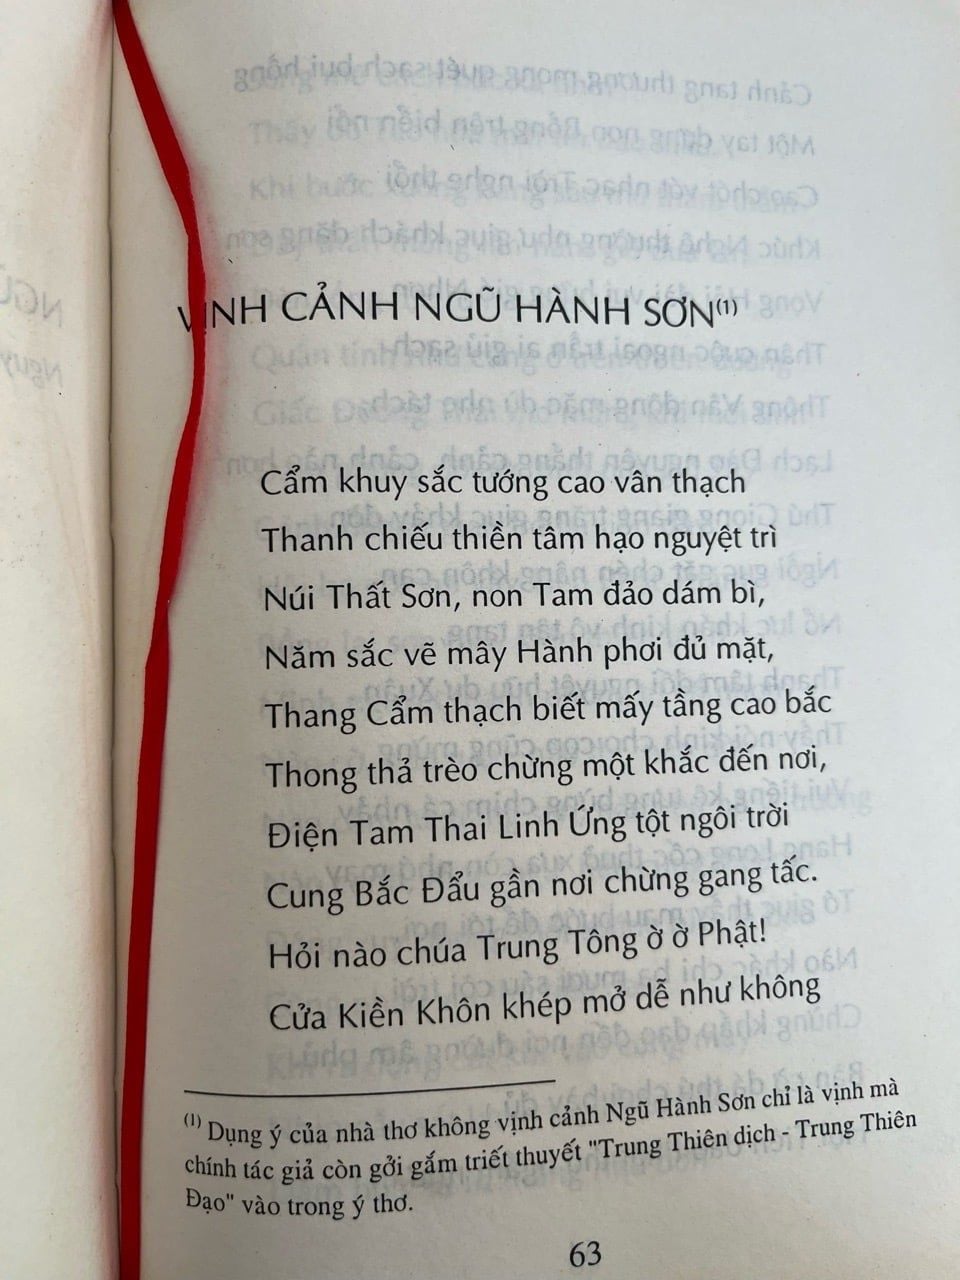 VỊNH CẢNH NGŨ HÀNH SƠN(1)
Cẩm khuy sắc tướng cao vân thạch
Thanh chiếu thiền tâm hạo nguyệt trì
Núi Thất Sơn, non Tam đảo dám bì,
Năm sắc vẽ mây Hành phơi đủ mặt,
Thang Cẩm thạch biết mấy tầng cao bắc
Thong thả trèo chừng một khắc đến nơi,
Điện Tam Thai Linh Ứng tột ngôi trời
Cung Bắc Đẩu gần nơi chừng gang tấc.
Hỏi nào chúa Trung Tông ờ ờ Phật!
Cửa Kiền Khôn khép mở dễ như không
(1) Dụng ý của nhà thơ không vịnh cảnh Ngũ Hành Sơn chỉ là vịnh mà
chính tác giả còn gởi gắm triết thuyết "Trung Thiên dịch - Trung Thiên
Đạo" vào trong ý thơ.
63